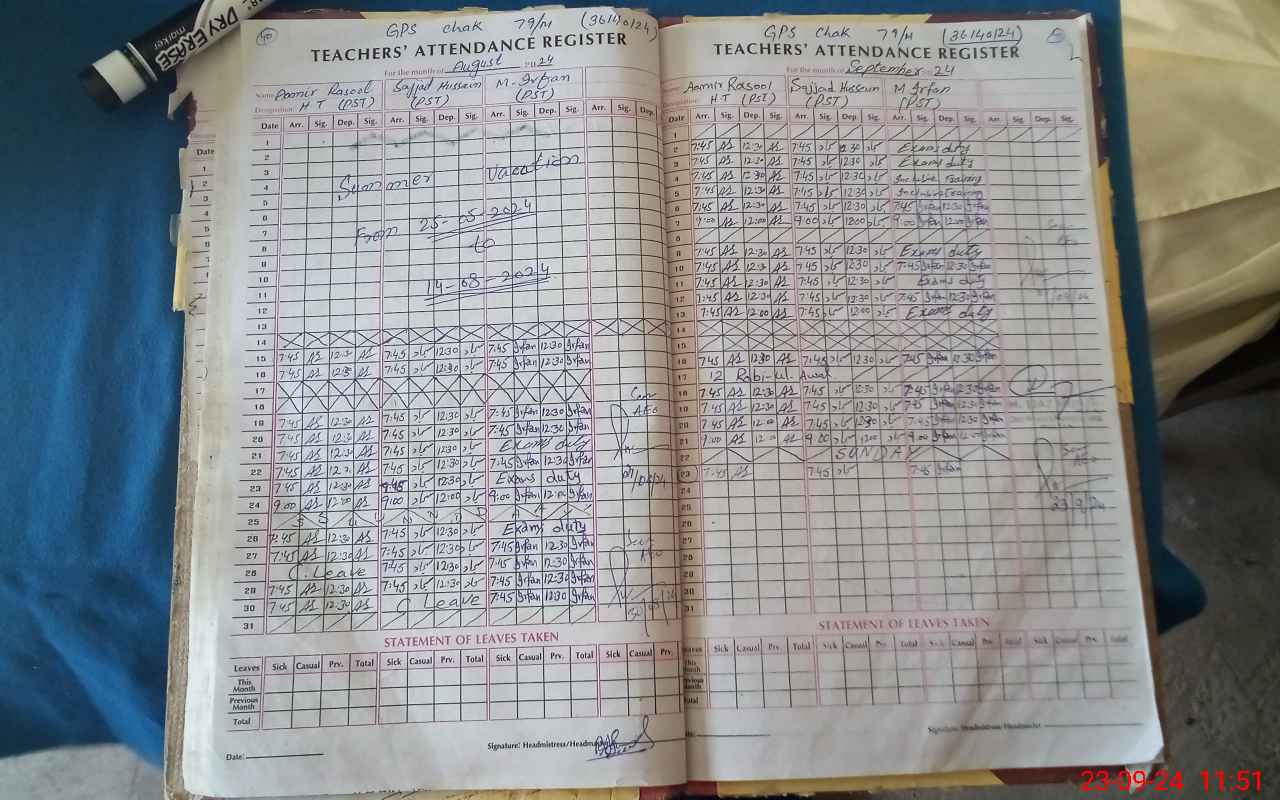 DRY ERASE
marker
40
GPS chak 79/M (36140124)
TEACHERS' ATTENDANCE REGISTER
For the month of August 2024
Name Aamir Rasool Sajjad Hussain M. Irfan
Designation H T (PST) (PST) (PST)
Date Arr. Sig. Dep. Sig. Arr. Sig. Dep. Sig. Arr. Sig. Dep. Sig. Arr. Sig. Dep.
1
2
3
4
5
6
7
8
9
10
11
12
Summer Vacation
From 25-05-2024
to
14-08-2024
13
14
15 7:45 A1 12:30 A1 7:45 12:30 7:45 Irfan 12:30 Irfan
16 7:45 A1 12:30 A1 7:45 12:30 7:45 Irfan 12:30 Irfan
17
18
19 7:45 A1 12:30 A1 7:45 12:30 7:45 Irfan 12:30 Irfan
20 7:45 A1 12:30 A1 7:45 12:30 7:45 Irfan 12:30 Irfan
21 7:45 A1 12:30 A1 7:45 12:30 Exams duty
22 7:45 A1 7:45 12:30 7:45 Irfan 12:30 Irfan
23 7:45 A1 12:30 A1 12:30 Exams duty
24 9:00 A1 12:00 A1 9:00 12:00 9:00 Irfan 12:00 Irfan
25
26 7:45 A1 12:30 A1 7:45 12:30 Exams duty
27 7:45 A1 12:30 A1 7:45 12:30 7:45 Irfan 12:30 Irfan
28 C. Leave 7:45 12:30 7:45 Irfan 12:30 Irfan
29 7:45 A1 12:30 A1 7:45 12:30 7:45 Irfan 12:30 Irfan
30 7:45 A1 12:30 A1 C Leave 7:45 Irfan 12:30 Irfan
31
AEO
STATEMENT OF LEAVES TAKEN
Leaves Sick Casual Prv. Total Sick Casual Prv. Total Sick Casual Prv. Total Sick Casual Prv.
This Month
Previous Month
Total
Date: Signature: Headmistress/Headmaster
GPS chak 79/M (36140124)
TEACHERS' ATTENDANCE REGISTER
For the month of September 24
Aamir Rasool Sajjad Hussain M Irfan
Designation H T (PST) (PST) (PST)
Date Arr. Sig. Dep. Sig. Arr. Sig. Dep. Sig. Arr. Sig. Dep. Sig. Arr. Sig. Dep. Sig.
1
2 7:45 A1 12:30 A1 7:45 12:30 Exams duty
3 7:45 A1 12:30 A1 7:45 12:30 Exams duty
4 7:45 A1 12:30 A1 7:45 12:30 Inclusive Training
5 7:45 A1 12:30 A1 7:45 12:30 Inclusive Training
6 7:45 A1 12:30 A1 7:45 12:30 7:45 Irfan 12:30 Irfan
7 9:00 A1 12:00 A1 9:00 12:00 9:00 Irfan 12:00 Irfan
8
9 7:45 A1 12:30 A1 7:45 12:30 Exams duty
10 7:45 A1 12:30 A1 7:45 12:30 7:45 Irfan 12:30 Irfan
11 7:45 A1 12:30 A1 7:45 12:30 Exams duty
12 7:45 A1 12:30 A1 7:45 12:30 7:45 Irfan 12:30 Irfan
13 7:45 A1 12:00 A1 7:45 12:00 Exams duty
14
15
16 7:45 A1 12:30 A1 7:45 12:30 7:45 Irfan 12:30 Irfan
17 12 Rabi-ul. Awal
18 7:45 A1 12:30 A1 7:45 12:30 7:45 Irfan 12:30 Irfan
19 7:45 A1 12:30 A1 7:45 12:30 7:45 Irfan 12:30 Irfan
20 7:45 A1 12:00 A1 7:45 7:45 Irfan 12:30 Irfan
21 9:00 A1 12:00 A1 9:00 12:00 9:00 Irfan 12:00 Irfan
22 SUNDAY
23 7:45 A1 7:45 7:45 Irfan
24
25
26
27
28
29
30
31
AEO
STATEMENT OF LEAVES TAKEN
Leaves Sick Casual Prv. Total Sick Casual Prv. Total Sick Casual Prv. Total Sick Casual Prv. Total
This Month
Previous Month
Total
Signature: Headmistress/Headmaster
23-09-24 11:51